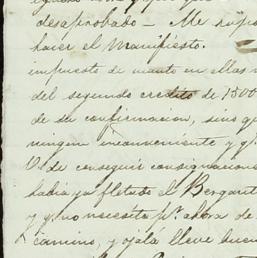 desaprobado – Me
hacer el Manifiesto.
impuesto de cuanto en ellas
del segundo credito de 1500
de su confirmacion, sino que
ningun inconveniente y q.
V. de conseguir consignacion
habia ya fletado el Bergant
y q. no necesita p.r ahora de
camino, y ojalá lleve buen